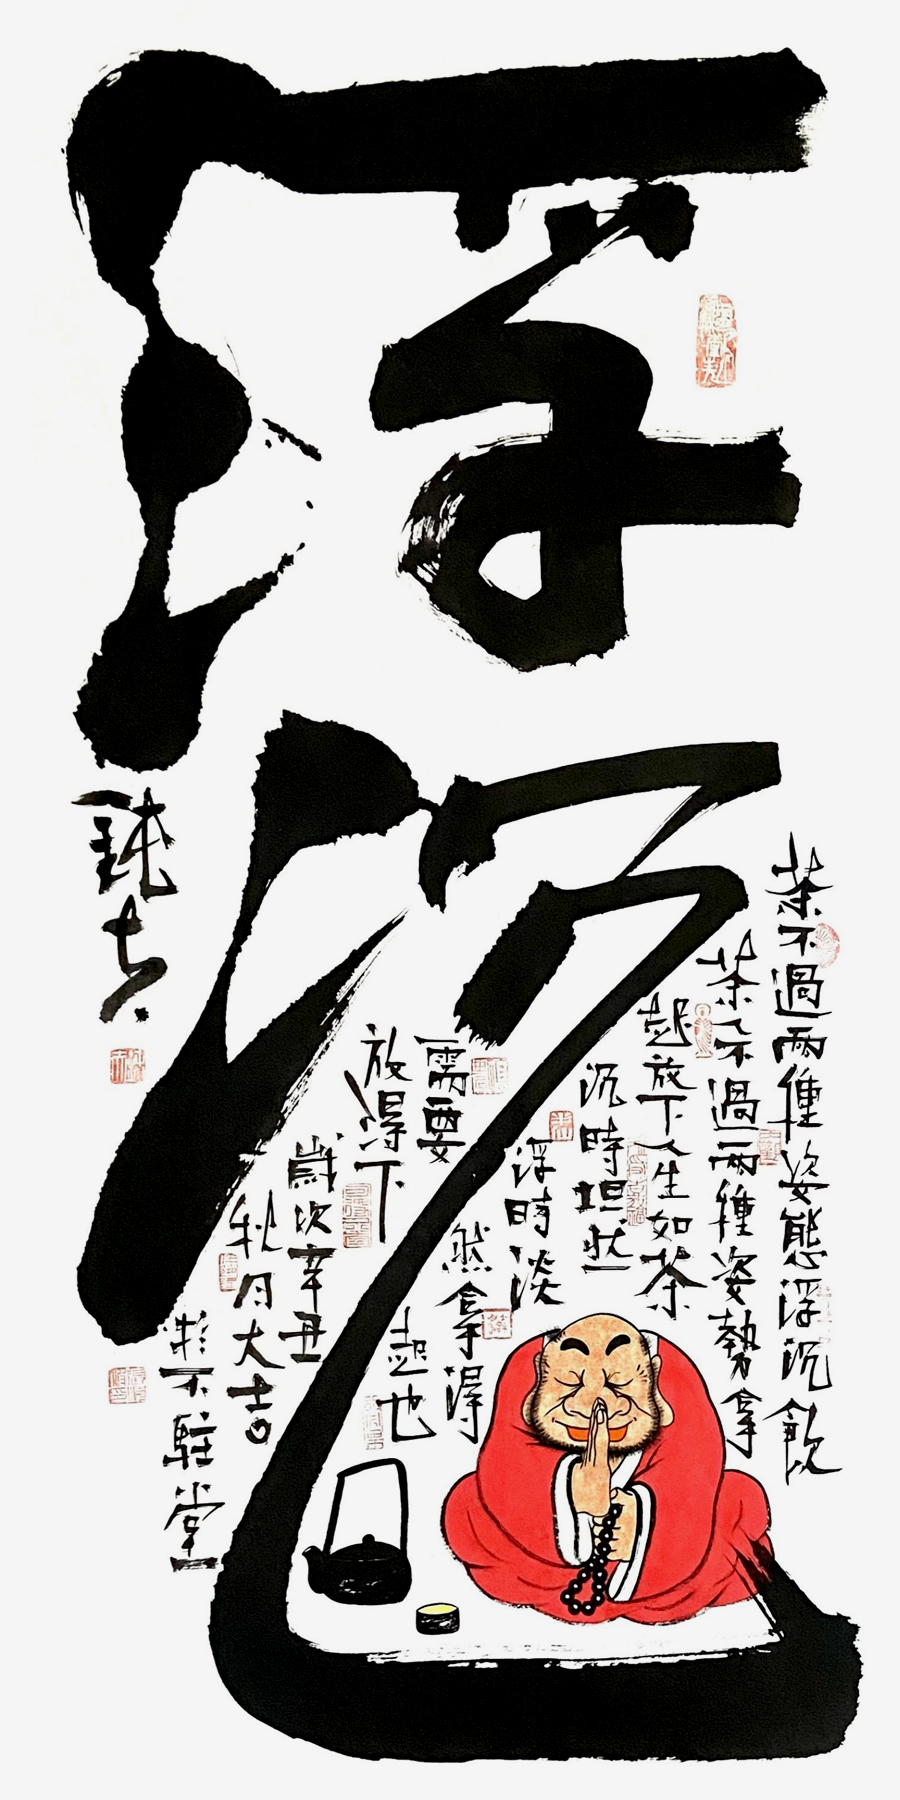 浮沉
茶不過兩種姿態浮沉飲
茶不過兩種姿勢拿
起放下人生如茶
沉時坦然
浮時淡
然拿得
起也
需要
放得下
歲次辛丑
秋月大吉
於不駐堂